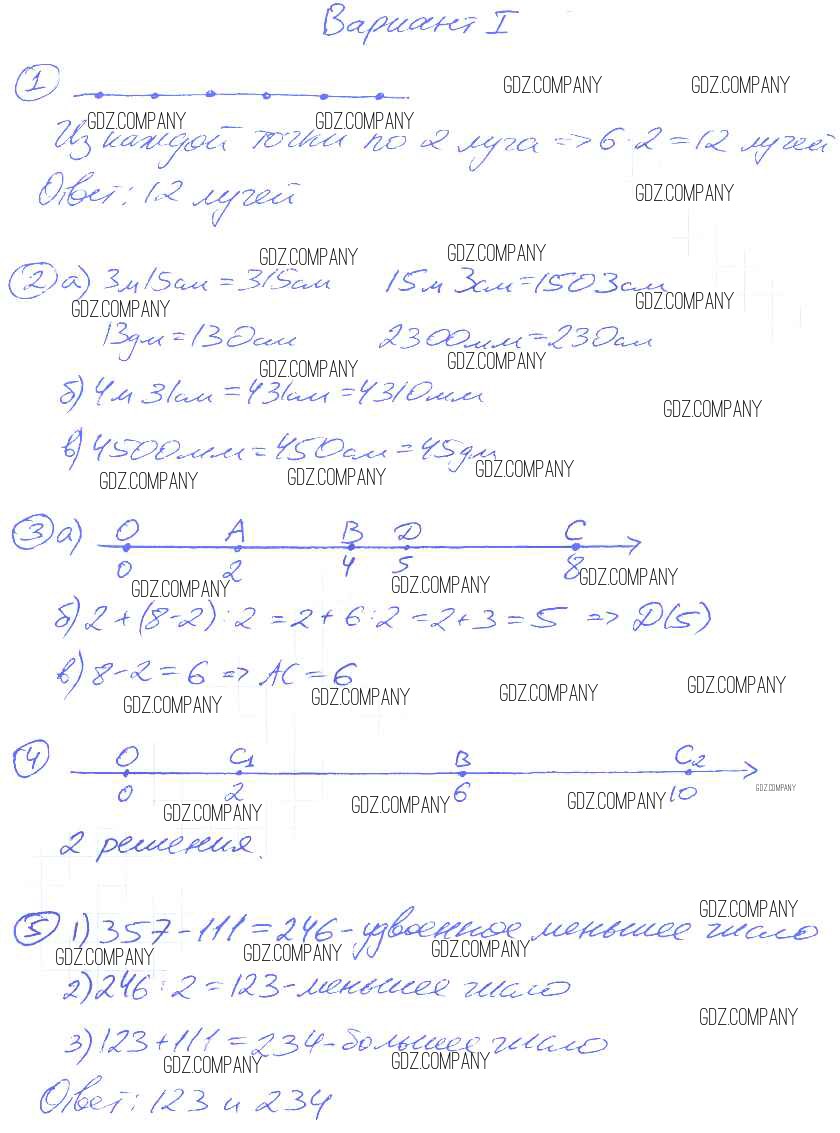 Вариант I
1
GDZ.COMPANY GDZ.COMPANY
GDZ.COMPANY GDZ.COMPANY
Из каждой точки по 2 луча => 6·2=12 лучей
Ответ: 12 лучей
GDZ.COMPANY
GDZ.COMPANY GDZ.COMPANY
2 а) 3м15см=315см 15м 3см=1503см
GDZ.COMPANY GDZ.COMPANY
13дм=130см 2300мм=230см
GDZ.COMPANY GDZ.COMPANY
б) 4м 31см=431см=4310мм
GDZ.COMPANY
в) 4500мм=450см=45дм
GDZ.COMPANY GDZ.COMPANY GDZ.COMPANY
3 а) O A B D C
0 2 4 5 8
GDZ.COMPANY GDZ.COMPANY GDZ.COMPANY
б) 2+(8-2):2=2+6:2=2+3=5 => D(5)
в) 8-2=6 => AC=6
GDZ.COMPANY GDZ.COMPANY GDZ.COMPANY GDZ.COMPANY
4 O C1 B C2
0 2 6 10
GDZ.COMPANY
GDZ.COMPANY GDZ.COMPANY GDZ.COMPANY
2 решения.
GDZ.COMPANY
5 1) 357-111=246-удвоенное меньшее число
GDZ.COMPANY GDZ.COMPANY GDZ.COMPANY
2) 246:2=123-меньшее число
GDZ.COMPANY
3) 123+111=234-большее число
GDZ.COMPANY GDZ.COMPANY
Ответ: 123 и 234